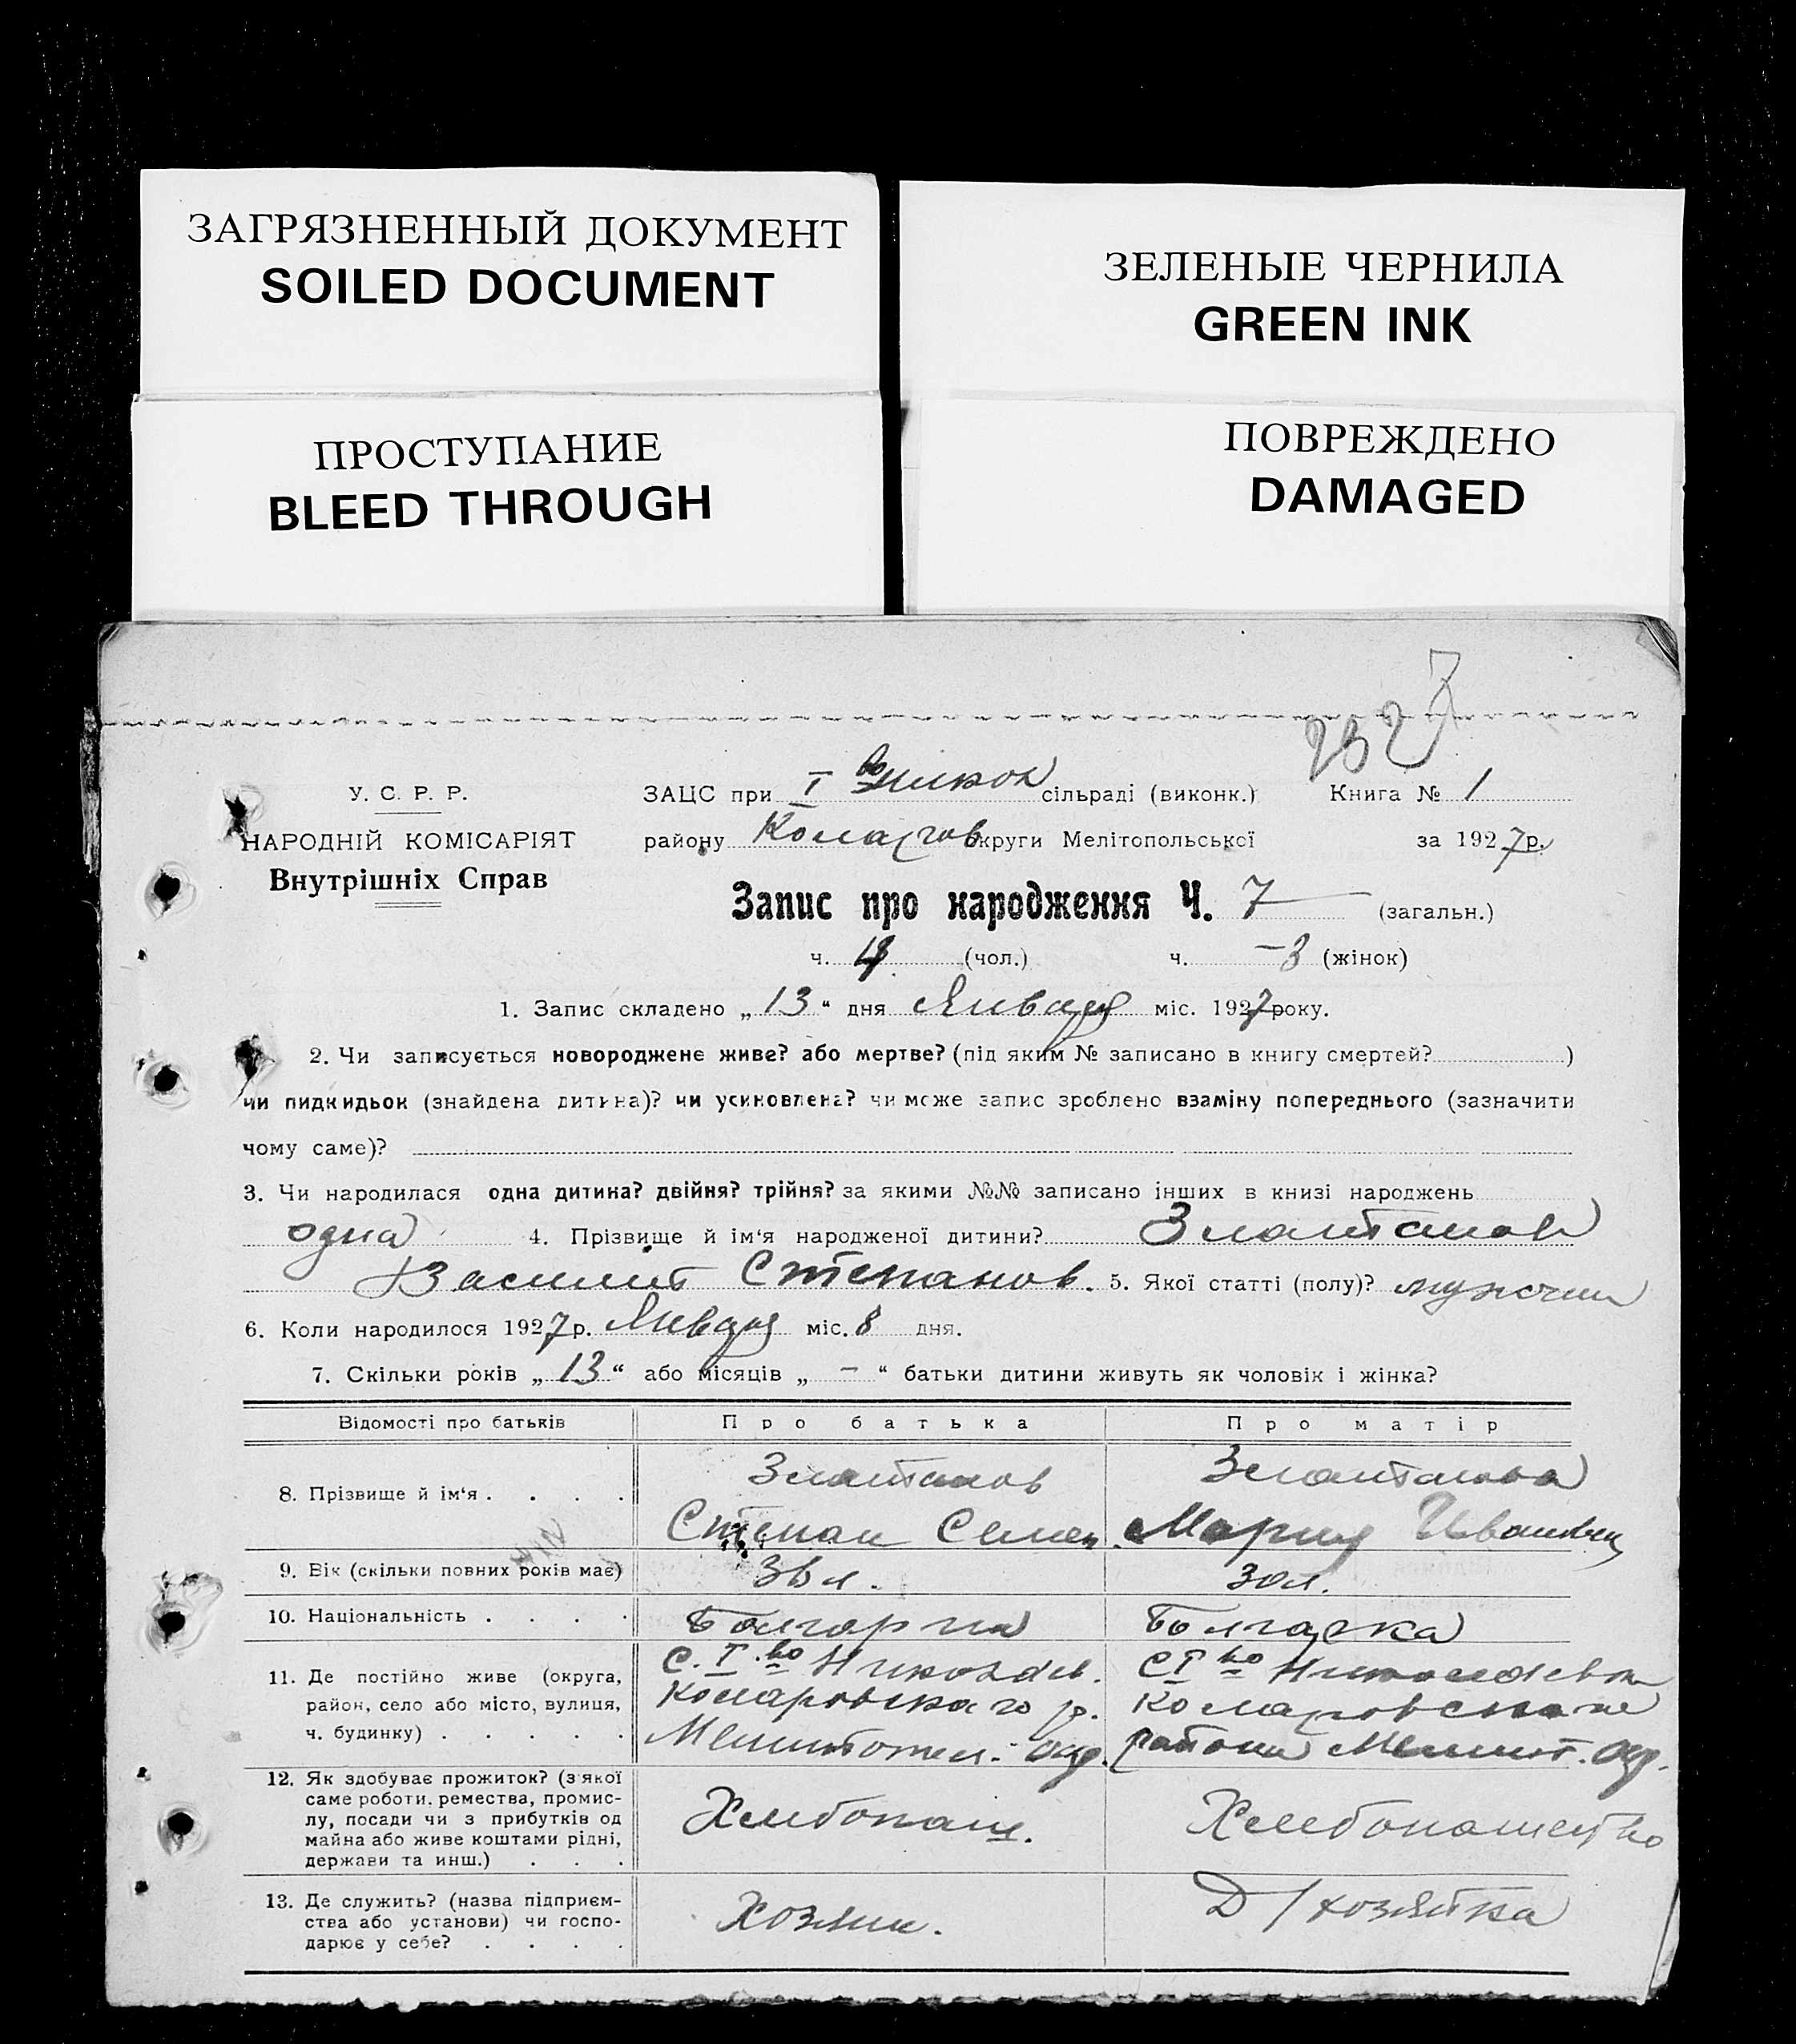 ЗАГРЯЗНЕННЫЙ ДОКУМЕНТ
SOILED DOCUMENT
ЗЕЛЕНЫЕ ЧЕРНИЛА
GREEN INK
ПРОСТУПАНИЕ
BLEED THROUGH
ПОВРЕЖДЕНО
DAMAGED
У. С. Р. Р.
НАРОДНІЙ КОМІСАРІЯТ
Внутрішніх Справ
ЗАЦС при I во Никол сільраді (виконк.) Книга № 1
району Комаров округи Мелітопольської за 1927 р.
Запис про народження Ч. 7 (загальн.)
ч. 4 (чол.) ч. – 3 (жінок)
1. Запис складено „ 13 “ дня Января міс. 1927 року.
2. Чи записується новороджене живе? або мертве? (під яким № записано в книгу смертей? )
чи пидкидьок (знайдена дитина)? чи усиновлена? чи може запис зроблено взаміну попереднього (зазначити
чому саме)?
3. Чи народилася одна дитина? двійня? трійня? за якими №№ записано інших в книзі народжень
одна 4. Прізвище й ім‘я народженої дитини? Златанов
Василий Степанов. 5. Якої статті (полу)? мужчин
6. Коли народилося 1927 р. Января міс. 8 дня.
7. Скільки років „ 13 “ або місяців „ – “ батьки дитини живуть як чоловік і жінка?
Відомості про батьків Про батька Про матір
8. Прізвище й ім‘я . . . . Златанов Златанова
Степан Семен. Мария Ивановн
9. Вік (скільки повних років має) 30 л.
10. Національність . . . . Болгарин Болгарка
11. Де постійно живе (округа,
район, село або місто, вулиця,
ч. будинку) . . . . .
С. I во Николаев.
Комаровского р.
Мелитопол. Окр.
С I во Николаевки
Комаровского
района Мелит. Окр.
12. Як здобуває прожиток? (з якої
саме роботи, ремества, промис-
лу, посади чи з прибутків од
майна або живе коштами рідні,
держави та инш.) . . .
Хлебопаш.
Хлебопашество
13. Де служить? (назва підприєм-
ства або установи) чи госпо-
дарює у себе? . . . .
Хозяин.
Д/хозяйка